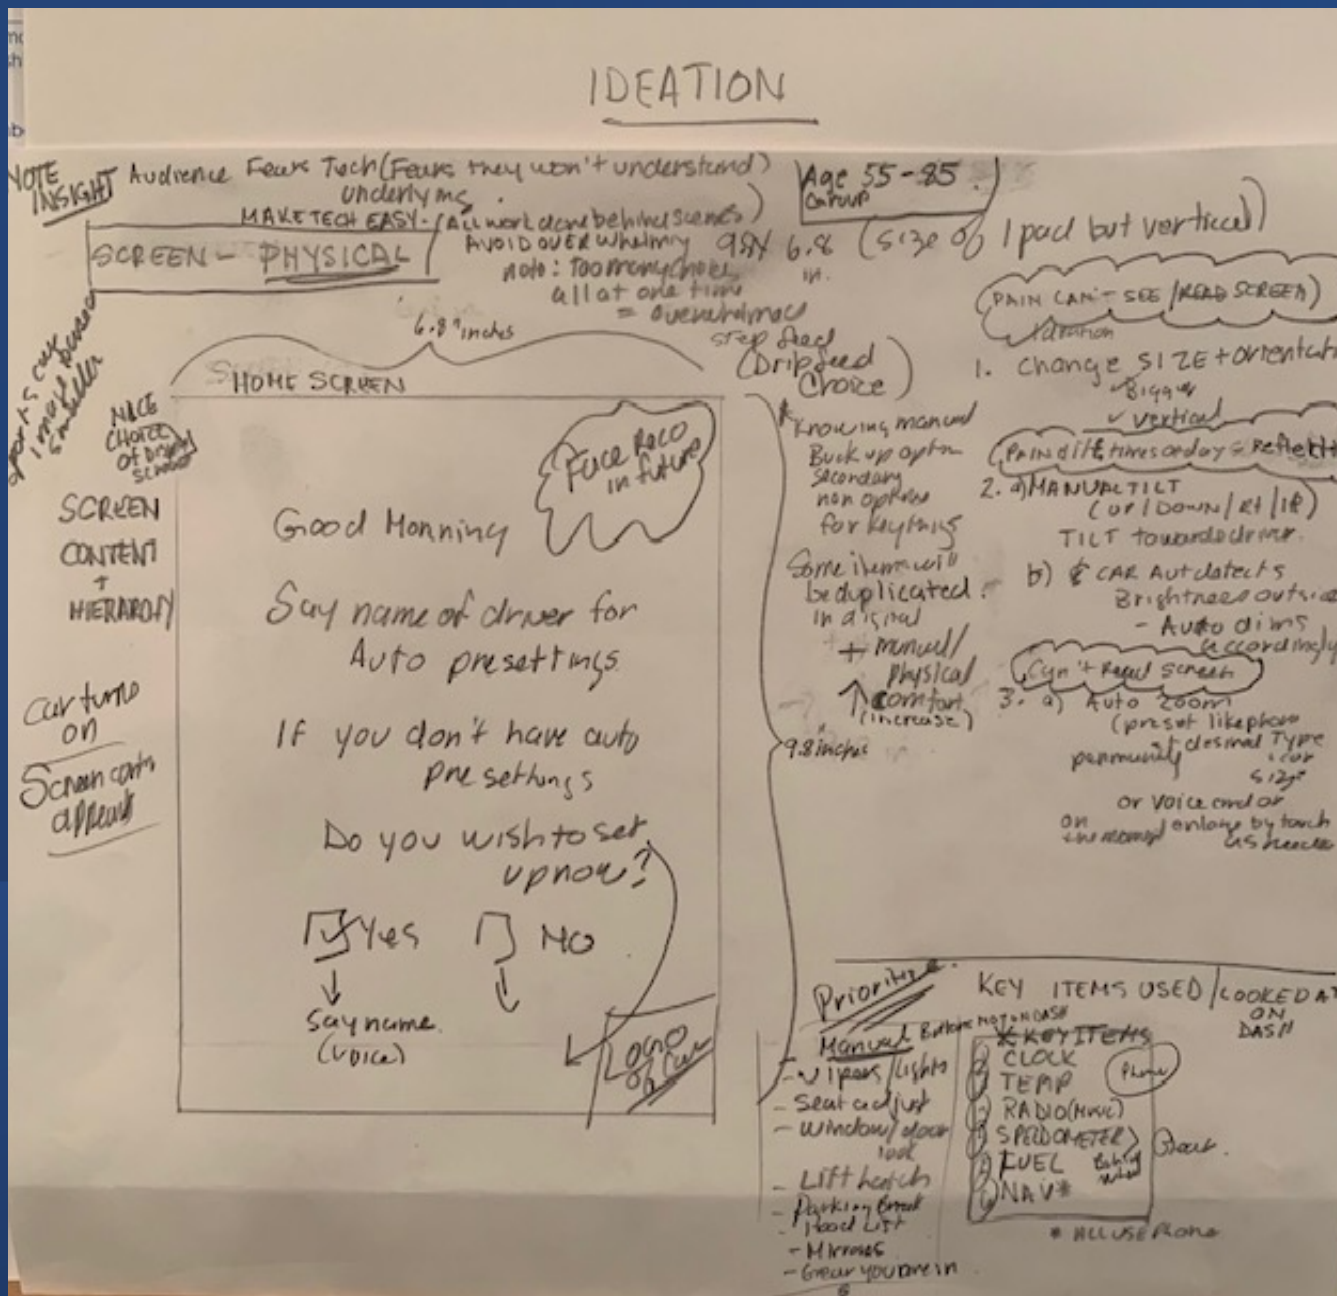 IDEATION
NOTE
INSIGHT
Audience Fears Tech (Fears they won't understand)
underlying
MAKE TECH EASY - (All work done behind scenes)
Age 55-85
Group
SCREEN - PHYSICAL
AVOID OVER whelming
note: Too many choices
all at one time
=
9.8 x 6.8 (size of Ipad but vertical)
in.
sports car
smaller
6.8" inches
HOME SCREEN
step feed
(Drip feed
Choice)
NICE
CHOICE
OF
SCREEN
CONTENT
+
HIERARCHY
Car turns
on
Screen
appears
Face Reco
in future
Good Morning
Say name of driver for
Auto presettings
If you don't have auto
presettings
Do you wish to set
up now?
Yes
NO
Say name.
(voice)
LOGO
of Car
9.8 inches
* Knowing manual
Back up option
secondary
for key things
Some items will
be duplicated
in digital
+ manual/
physical
comfort
(increase)
PAIN CAN'T SEE / READ SCREEN)
Ideation
1. Change SIZE + orientat
Bigger
✓ vertical
PAIN diff times of day = Reflect
2. a) MANUAL TILT
(UP/DOWN/Rt/lf)
TILT towards driver.
b) CAR Autdetects
Brightness outside
- Auto dims
accordingly
Can't Read Screen
3. a) Auto zoom
(preset like phone
desired Type
size
or voice and or
on enlarge by touch
as needed
Prioritize
Manual Buttons NOT ON DASH
- Wipers/Lights
- Seat adjust
- Window/door
lock
- Lift hatch
- Parking Break
- Hood Lift
- Mirrors
- Gear you are in
KEY ITEMS USED / LOOKED AT
ON
DASH
* KEY ITEMS
CLOCK
TEMP
Phone
RADIO (MUSIC)
SPEEDOMETER
FUEL
Behind
wheel
NAV*
* ALL USE Phone